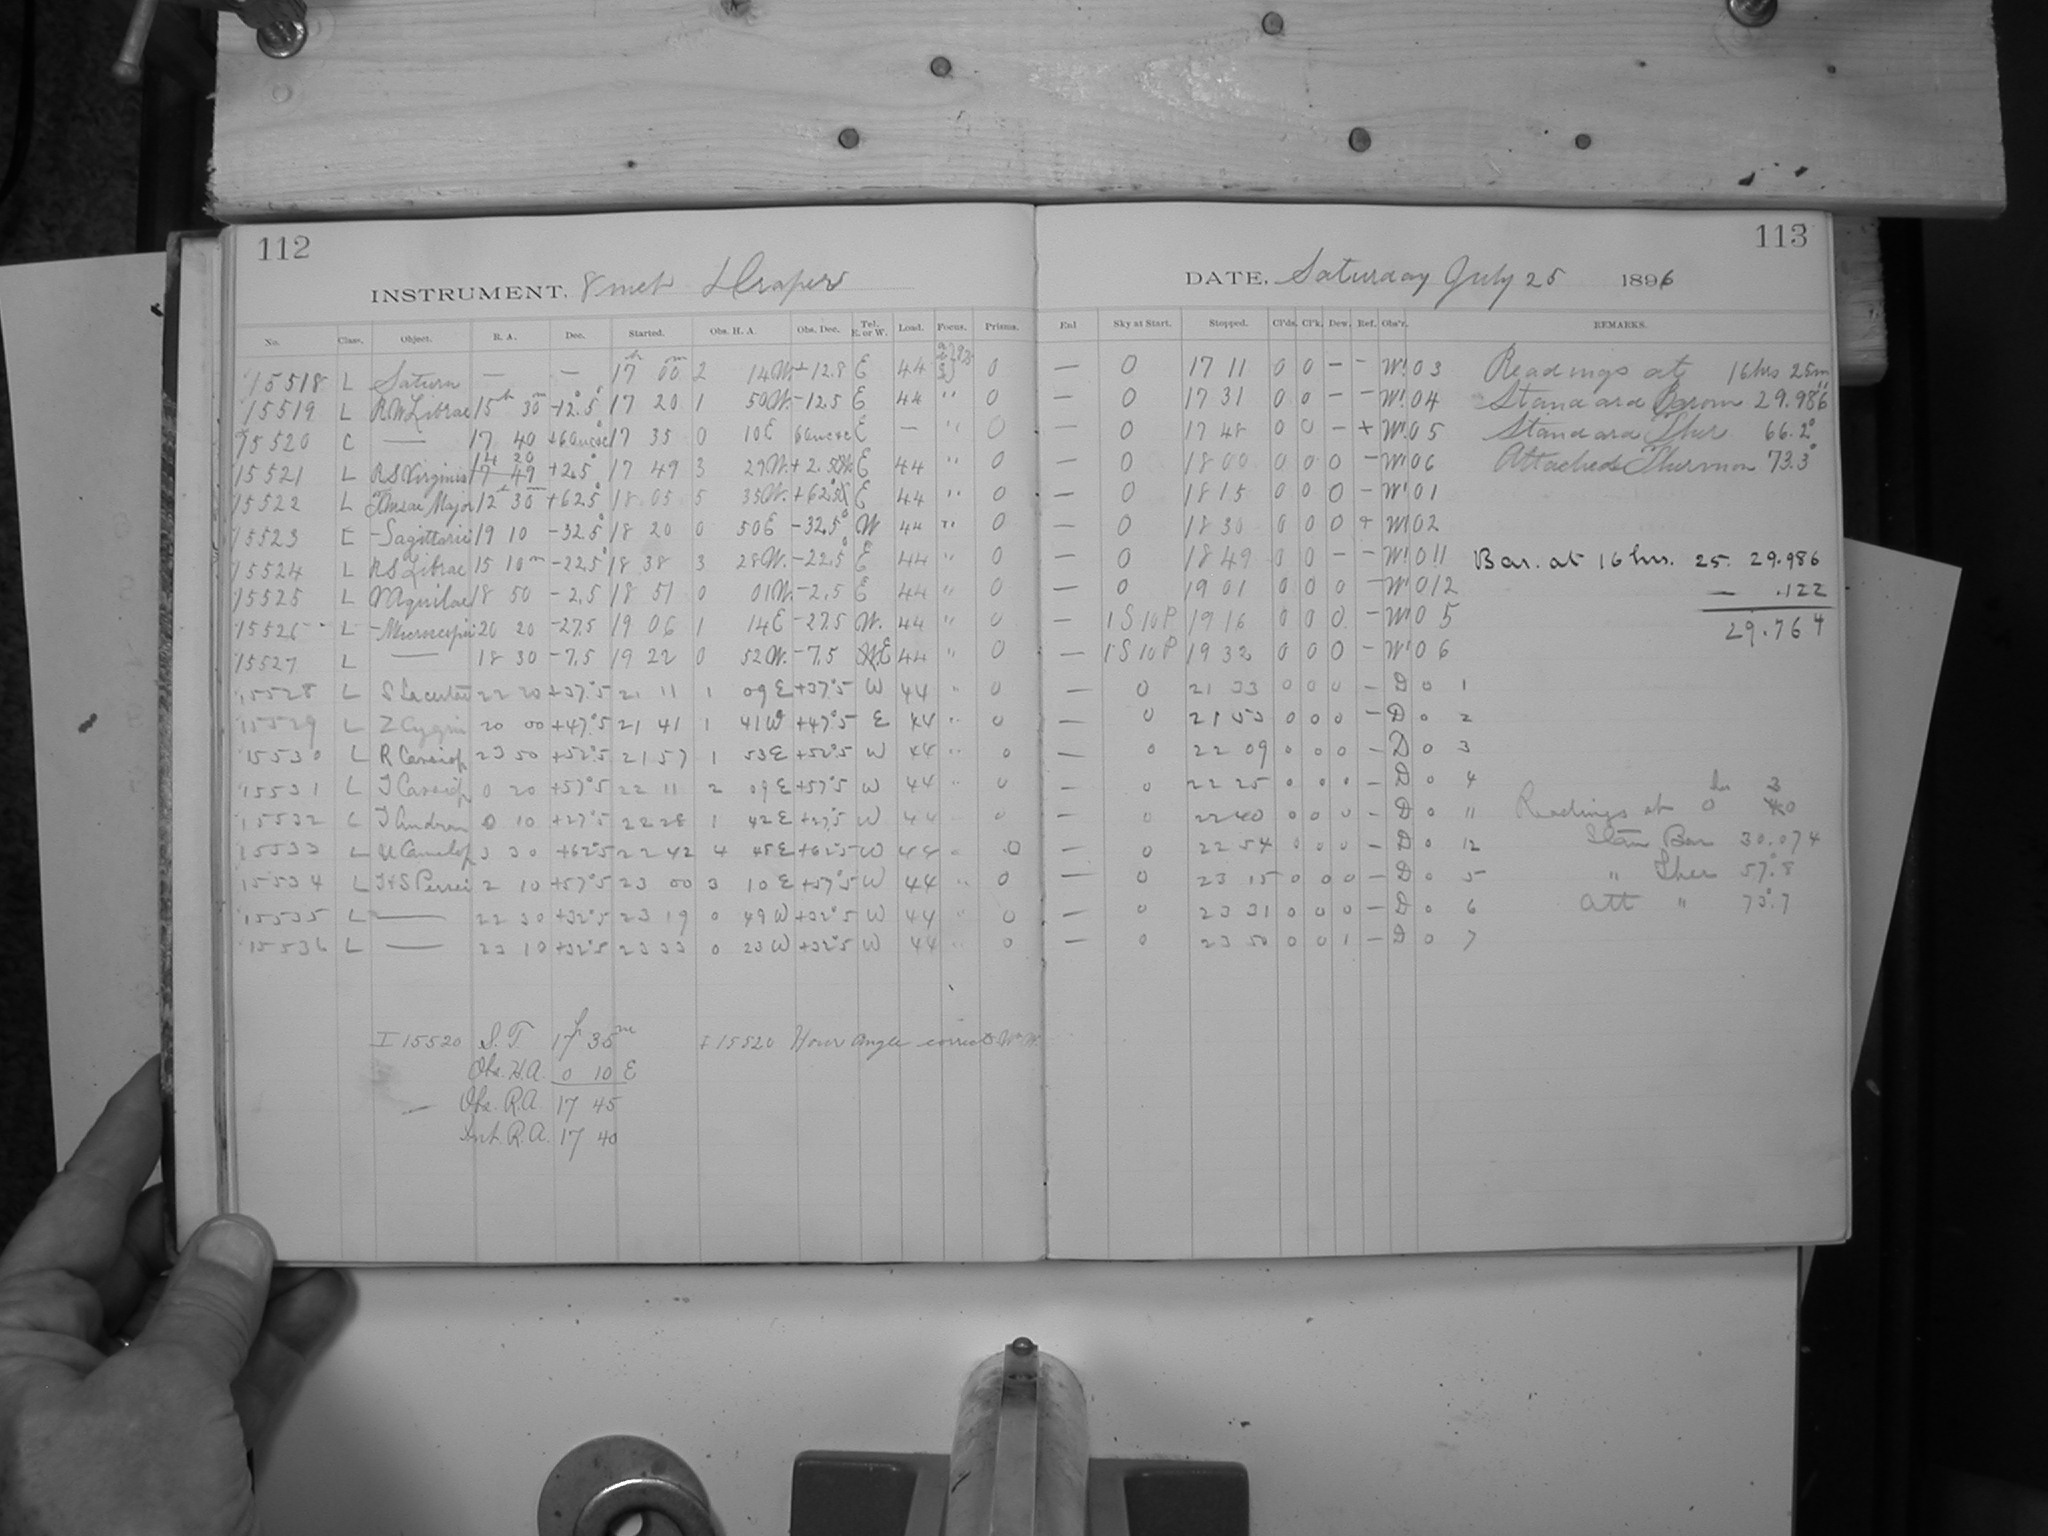 112
INSTRUMENT. 8 inch Draper
No. Class. Object. R. A. Dec. Started. Obs. H. A. Obs. Dec. Tel. E. or W. Load. Focus. Prisms.
15518 L Saturn — — 17h 00m 2 14W. +12.8 E 44 0
15519 L R.W. Librae 15h 30m -12.5° 17 20 1 50W. -12.5 E 44 " 0
15520 C — 17 40 17 35 0 10E E — " 0
14 20
15521 L RS Virginis 17 49 +2.5° 17 49 3 29W. +2.5 E 44 " 0
15522 L T Ursae Major 12h 30m +62.5° 18 05 5 35W. +62.5 E 44 " 0
15523 C -Sagittarii 19 10 -32.5° 18 20 0 50E -32.5° W 44 " 0
15524 L RS Librae 15 10m -22.5° 18 38 3 28W. -22.5° E 44 " 0
15525 L V Aquilae 18 50 -2.5 18 51 0 01W. -2.5 E 44 " 0
15526 L -Microscopii 20 20 -27.5 19 06 1 14E -27.5 W. 44 " 0
15527 L — 18 30 -7.5 19 22 0 52W. -7.5 E 44 " 0
15528 L S Lacertae 22 20 +37°.5 21 11 1 09 E +37°.5 W 44 " 0
15529 L Z Cygni 20 00 +47°.5 21 41 1 41W +47°.5 E 44 " 0
15530 L R Cassiop 23 50 +52°.5 21 57 1 53E +52°.5 W 44 " 0
15531 L T Cassiop 0 20 +57°.5 22 11 2 09 E +57°.5 W 44 " 0
15532 L T Androm 0 10 +27°.5 22 28 1 42E +27°.5 W 44 " 0
15533 L U Camelop 3 30 +62°.5 22 42 4 48E +62°.5 W 44 " 0
15534 L T+S Persei 2 10 +57°.5 23 00 3 10 E +57°.5 W 44 " 0
15535 L — 22 30 +32°.5 23 19 0 49 W +32°.5 W 44 " 0
15536 L — 23 10 +32°.5 23 33 0 23 W +32°.5 W 44 " 0
I 15520 S. T 17h 35m
Obs. H.A. 0 10 E
— Obs. R.A. 17 45
Int. R.A. 17 40
I 15520 Hour angle correct Wm W.
113
DATE. Saturday July 25 1896
Enl Sky at Start. Stopped. Cl'ds. Cl'k. Dew. Ref. Obs'r. REMARKS.
— 0 17 11 0 0 — — W! 0 3 Readings at 16hrs 25m
— 0 17 31 0 0 — — W! 0 4 Standard Barom 29.986
— 0 17 48 0 0 — + W! 0 5 Standard Ther 66.2°
— 0 18 00 0 0 0 — W! 0 6 Attached Thermom 73.3°
— 0 18 15 0 0 0 — W! 0 1
— 0 18 30 0 0 0 + W! 0 2
— 0 18 49 0 0 — — W! 0 11 Bar. at 16 hrs. 25. 29.986
— 0 19 01 0 0 0 — W! 0 12 — .122
— 1 S 10 P 19 16 0 0 0 — W! 0 5 29.764
— 1 S 10 P 19 32 0 0 0 — W! 0 6
— 0 21 33 0 0 0 — D 0 1
— 0 21 53 0 0 0 — D 0 2
— 0 22 09 0 0 0 — D 0 3
— 0 22 25 0 0 0 — D 0 4
— 0 22 40 0 0 0 — D 0 11 Readings at 0
— 0 22 54 0 0 0 — D 0 12 Stan Bar 30.074
— 0 23 15 0 0 0 — D 0 5 " Ther 57°.8
— 0 23 31 0 0 0 — D 0 6 Att " 73°.7
— 0 23 50 0 0 1 — D 0 7